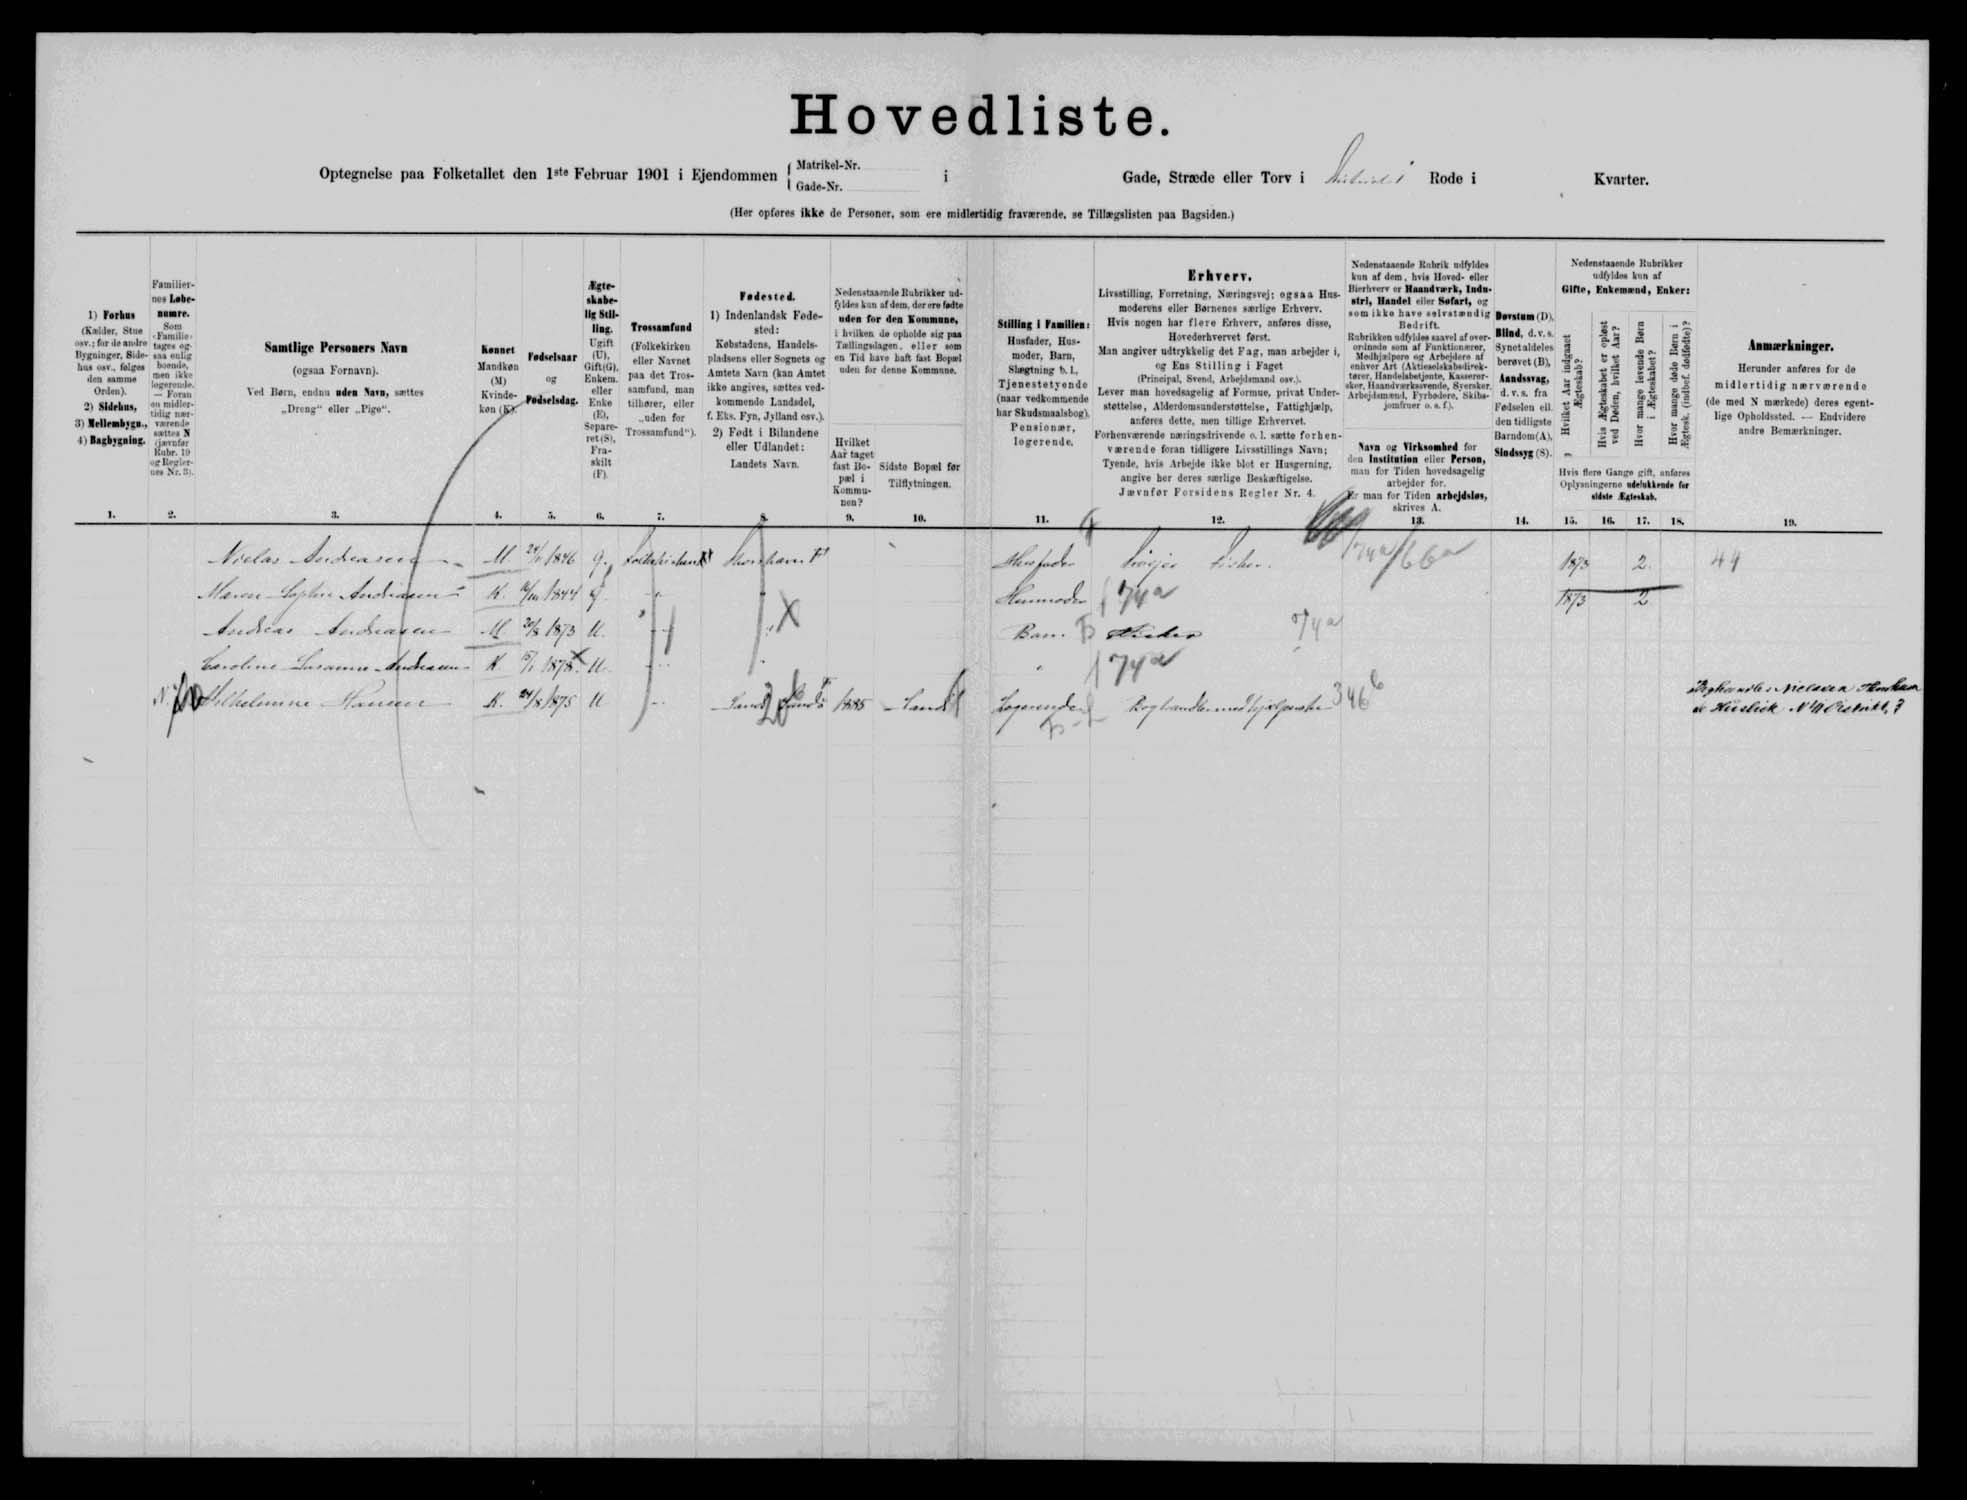 Hovedliste.
Optegnelse paa Folketallet den 1ste Februar 1901 i Ejendommen { Matrikel-Nr. Gade-Nr. i Gade, Stræde eller Torv i Rode i Kvarter.
(Her opføres ikke de Personer, som ere midlertidig fraværende, se Tillægslisten paa Bagsiden.)
1) Forhus
(Kælder, Stue
osv.; for de andre
Bygninger, Side-
hus osv., følges
den samme
Orden).
2) Sidehus,
3) Mellembygn.,
4) Bagbygning.
Familier-
nes Løbe-
numre.
Som
»Familie«
tages og-
saa enlig
boende,
men ikke
logerende.
— Foran
en midler-
tidig nær-
værende
sættes N
(jævnfør
Rubr. 19
og Regler-
nes Nr. 3).
Samtlige Personers Navn
(ogsaa Fornavn).
Ved Børn, endnu uden Navn, sættes
„Dreng“ eller „Pige“.
Kønnet
Mandkøn
(M)
Kvinde-
køn (K).
Fødselsaar
og
Fødselsdag.
Ægte-
skabe-
lig Stil-
ling.
Ugift
(U),
Gift(G),
Enkem.
eller
Enke
(E),
Separe-
ret (S),
Fra-
skilt
(F).
Trossamfund
(Folkekirken
eller Navnet
paa det Tros-
samfund, man
tilhører, eller
„uden for
Trossamfund“).
Fødested.
1) Indenlandsk Føde-
sted:
Købstadens, Handels-
pladsens eller Sognets og
Amtets Navn (kan Amtet
ikke angives, sættes ved-
kommende Landsdel,
f. Eks. Fyn, Jylland osv.).
2) Født i Bilandene
eller Udlandet:
Landets Navn.
Nedenstaaende Rubrikker ud-
fyldes kun af dem, der ere fødte
uden for den Kommune,
i hvilken de opholde sig paa
Tællingsdagen, eller som
en Tid have haft fast Bopæl
uden for denne Kommune.
Hvilket
Aar taget
fast Bo-
pæl i
Kommu-
nen?
Sidste Bopæl før
Tilflytningen.
Stilling i Familien:
Husfader, Hus-
moder, Barn,
Slægtning b. l.,
Tjenestetyende
(naar vedkommende
har Skudsmaalsbog),
Pensionær,
logerende.
Erhverv.
Livsstilling, Forretning, Næringsvej; ogsaa Hus-
moderens eller Børnenes særlige Erhverv.
Hvis nogen har flere Erhverv, anføres disse,
Hovederhvervet først.
Man angiver udtrykkelig det Fag, man arbejder i,
og Ens Stilling i Faget
(Principal, Svend, Arbejdsmand osv.).
Lever man hovedsagelig af Formue, privat Under-
støttelse, Alderdomsunderstøttelse, Fattighjælp,
anføres dette, men tillige Erhvervet.
Forhenværende næringsdrivende o. l. sætte forhen-
værende foran tidligere Livsstillings Navn;
Tyende, hvis Arbejde ikke blot er Husgerning,
angive her deres særlige Beskæftigelse.
Jævnfør Forsidens Regler Nr. 4.
Nedenstaaende Rubrik udfyldes
kun af dem, hvis Hoved- eller
Bierhverv er Haandværk, Indu-
stri, Handel eller Søfart, og
som ikke have selvstændig
Bedrift.
Rubrikken udfyldes saavel af over-
ordnede som af Funktionærer,
Medhjælpere og Arbejdere af
enhver Art (Aktieselskabsdirek-
tører, Handelsbetjente, Kasserer-
sker, Haandværkssvende, Syersker,
Arbejdsmænd, Fyrbødere, Skibs-
jomfruer o. s. f.).
Navn og Virksomhed for
den Institution eller Person,
man for Tiden hovedsagelig
arbejder for.
Er man for Tiden arbejdsløs,
skrives A.
Døvstum (D),
Blind, d. v. s.
Synet aldeles
berøvet (B),
Aandssvag,
d. v. s. fra
Fødselen ell.
den tidligste
Barndom(A),
Sindssyg (S).
Nedenstaaende Rubrikker
udfyldes kun af
Gifte, Enkemænd, Enker:
Hvilket Aar indgaaet
Ægteskab?
Hvis Ægteskabet er opløst
ved Døden, hvilket Aar?
Hvor mange levende Børn
i Ægteskabet?
Hvor mange døde Børn i
Ægtesk. (indbef. dødfødte)?
Hvis flere Gange gift, anføres
Oplysningerne udelukkende for
sidste Ægteskab.
Anmærkninger.
Herunder anføres for de
midlertidig nærværende
(de med N mærkede) deres egent-
lige Opholdssted. — Endvidere
andre Bemærkninger.
1. 2. 3. 4. 5. 6. 7. 8. 9. 10. 11. 12. 13. 14. 15. 16. 17. 18. 19.
Andreasen M. 1846 G. Husfader Fisker. 66a 1873 2. 44
Maren Sophie Andreasen K. 1844 G. Husmoder 74a 1873 2
Andreas Andreasen M 20/8 1873 U. Barn Fisker 74a
Caroline Susanne Andreasen K 1878 U. 74a
Vilhelmine Hansen K. 24/8 1875 U Sand Sandø 1885 Sand Logerende 346b